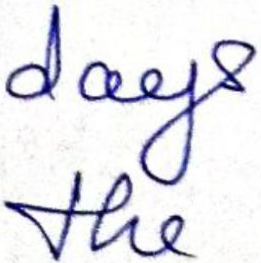 days
the